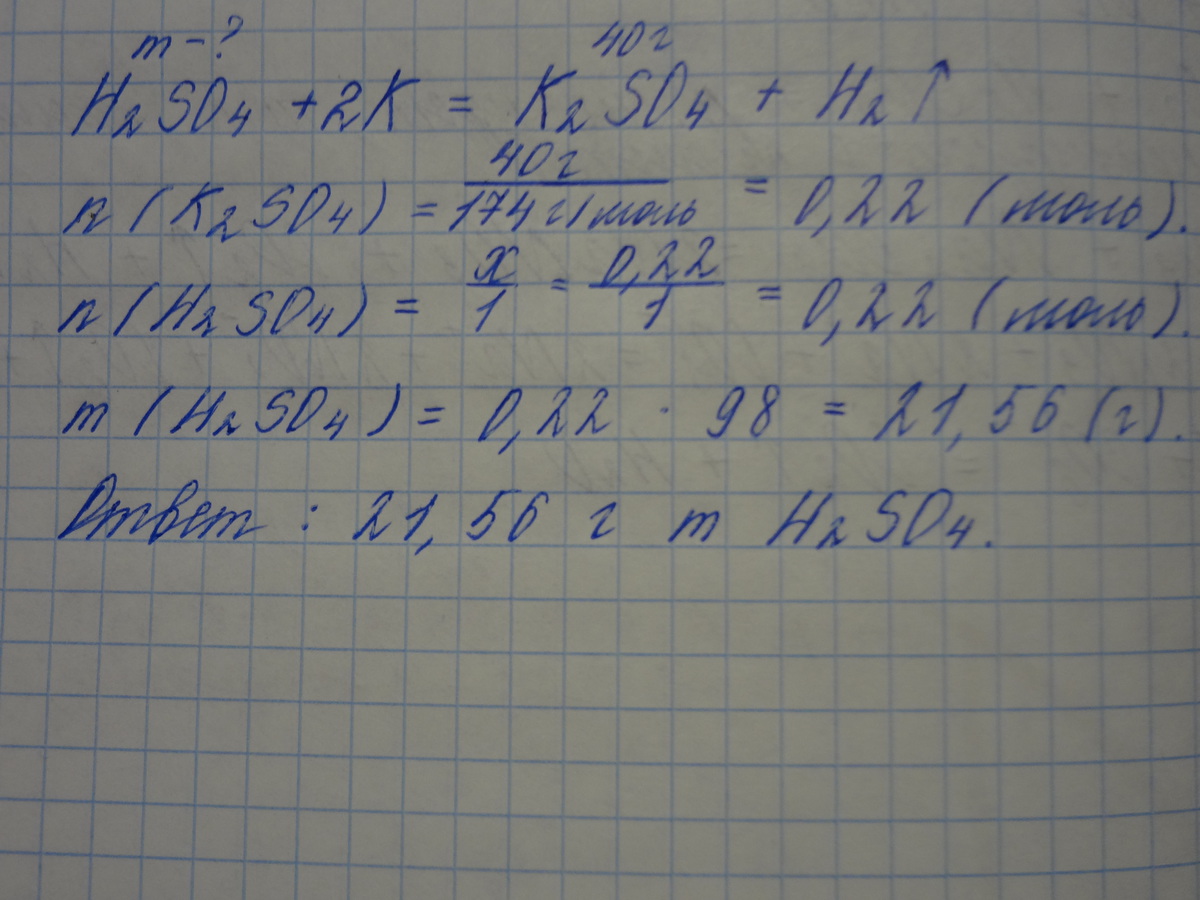 m-? 40г
H₂SO₄ + 2K = K₂SO₄ + H₂↑
n(K₂SO₄) = 40г/174 г/моль = 0,22 (моль).
n(H₂SO₄) = x/1 = 0,22/1 = 0,22 (моль).
m(H₂SO₄) = 0,22 · 98 = 21,56 (г).
Ответ: 21,56 г m H₂SO₄.